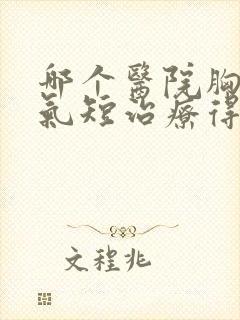 哪个醫院胸
氣短治療得
文程兆